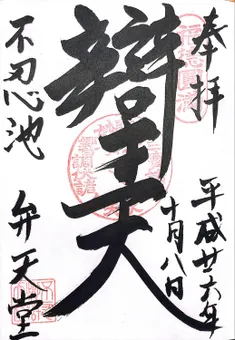 奉拝
平成廿六年
十月八日
辯才天
不忍池
弁天堂